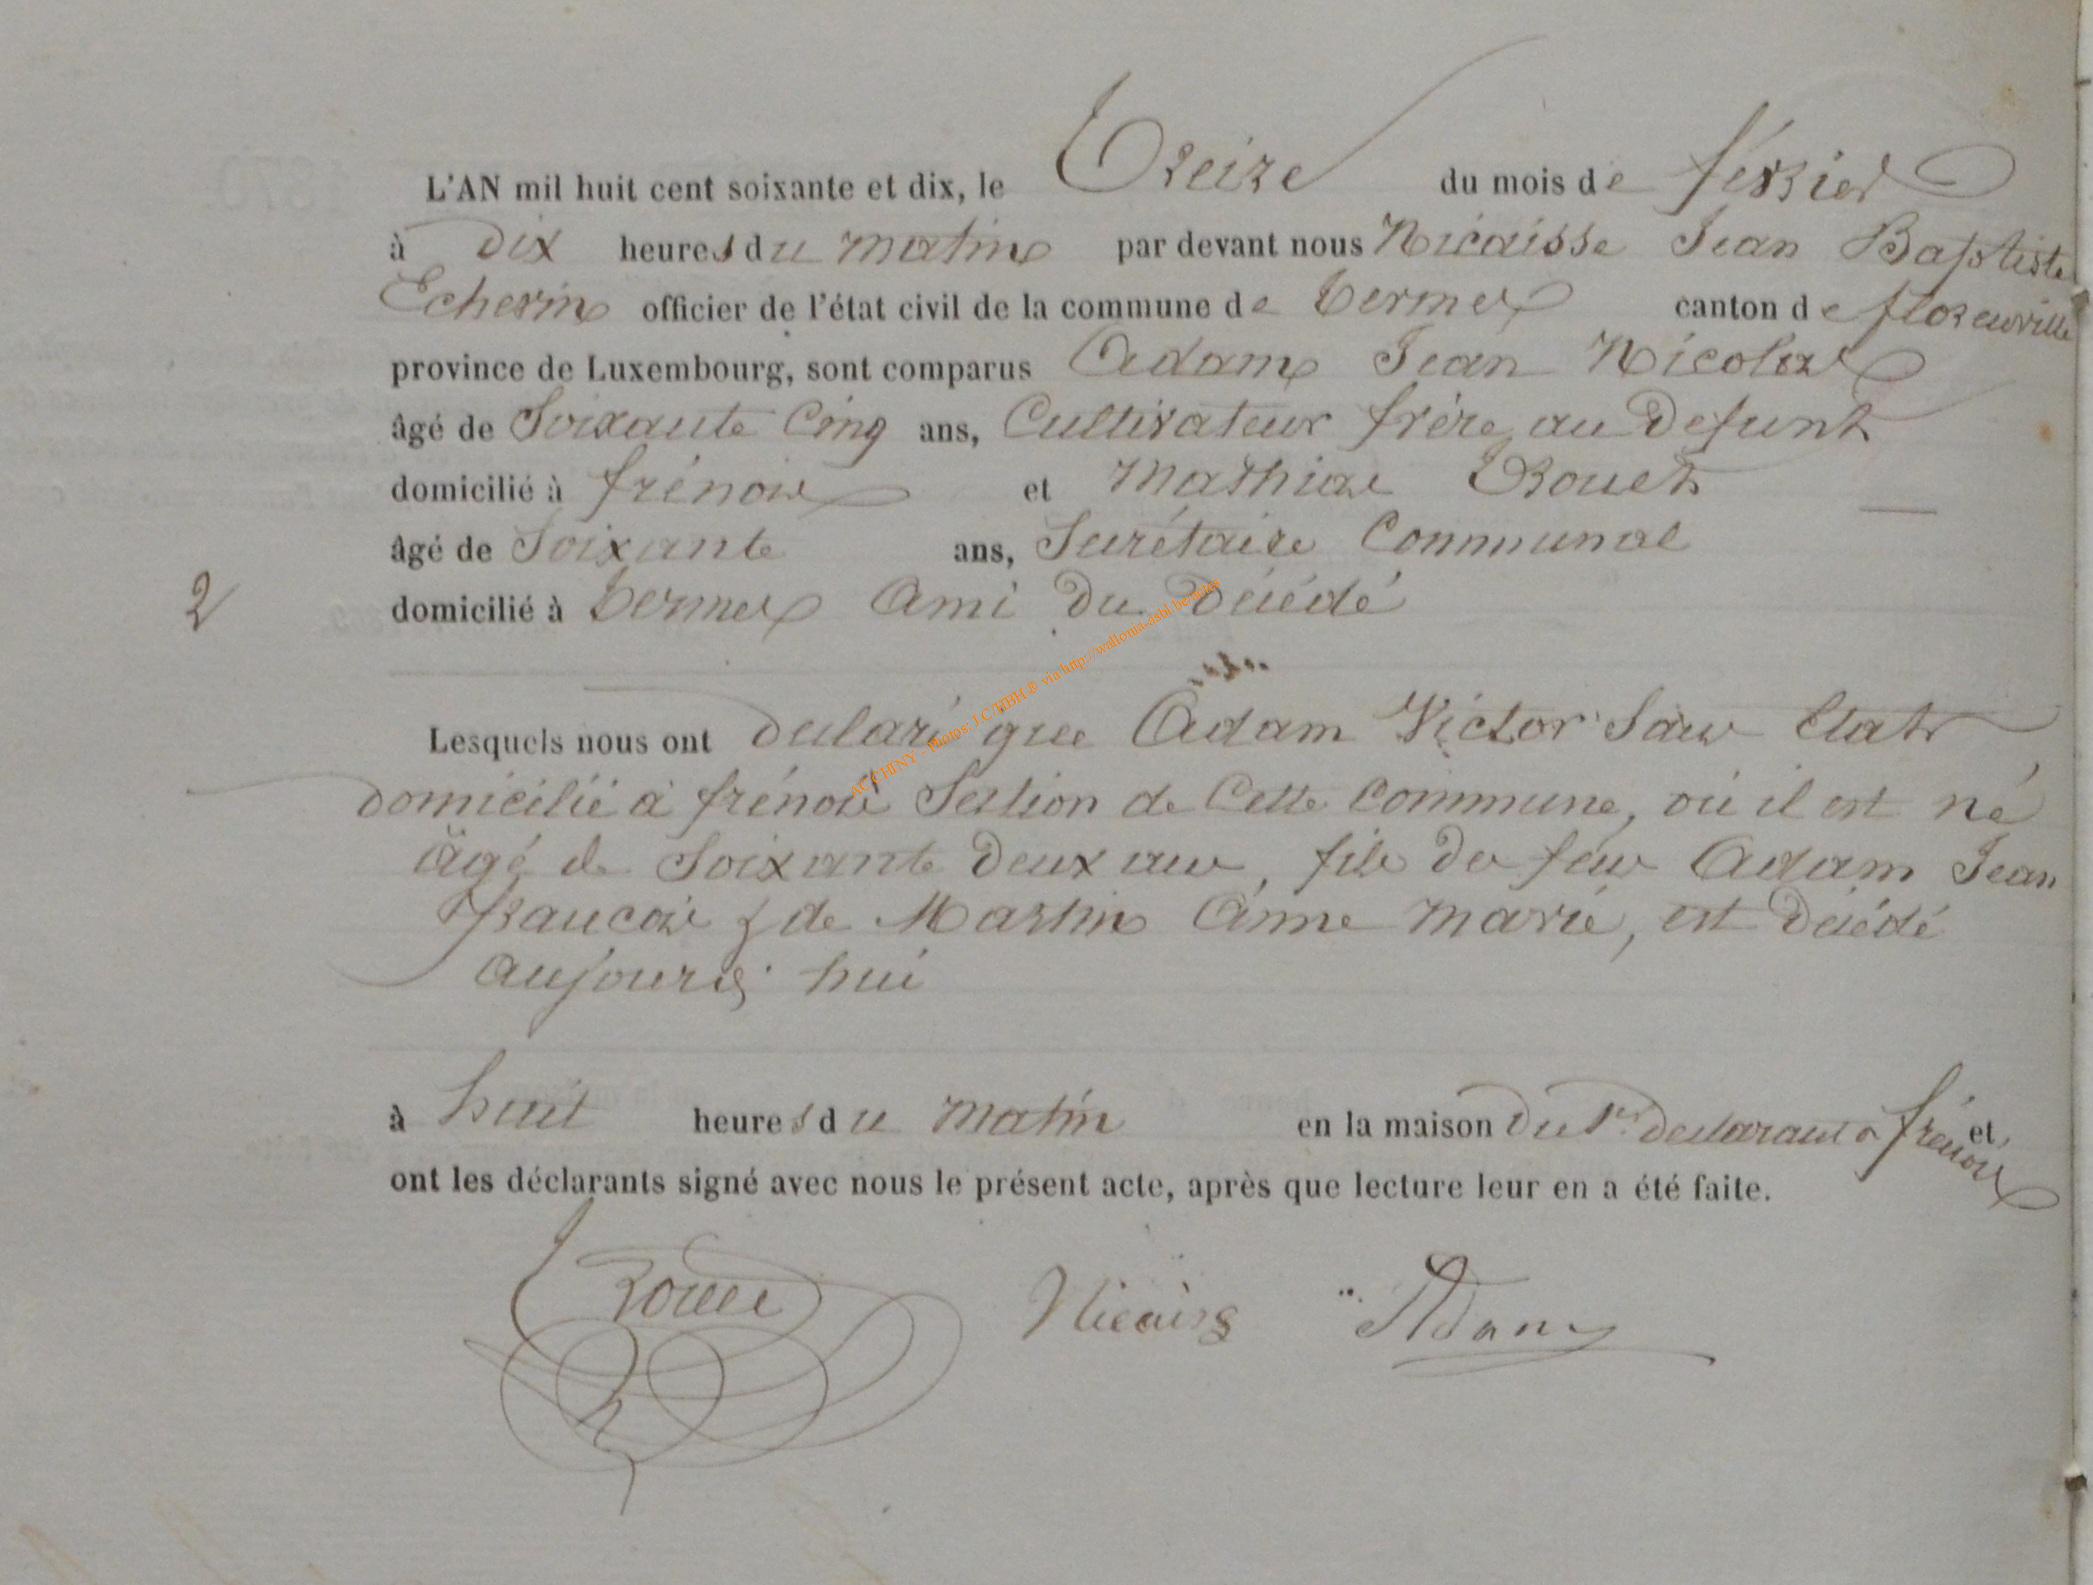 L'AN mil huit cent soixante et dix, le Treize du mois de fevrier
à Dix heures du matin par devant nous Nicaisse Jean Baptiste
Echevin officier de l'état civil de la commune de Termes canton de florenville
province de Luxembourg, sont comparus Adam Jean Nicolas
âgé de Soixante Cinq ans, Cultivateur frère au Defunt
domicilié à frénois et Mathias
âgé de Soixante ans, Secrétaire Communal
2 domicilié à Termes Ami Du Décédé
Lesquels nous ont declaré que Adam Victor Sans Etat
domicilié à frénois Section de Cette Commune, où il est né
âgé de Soixante Deux ans, fils de feu Adam Jean
francois & de Martin Anne Marie, est Décédé
aujourd'hui
à huit heures du matin en la maison Du 1er declarant à frénois et
ont les déclarants signé avec nous le présent acte, après que lecture leur en a été faite.
Adam
AC CHINY - Photos: J.C HBH.® via http://wallonia-asbl.be